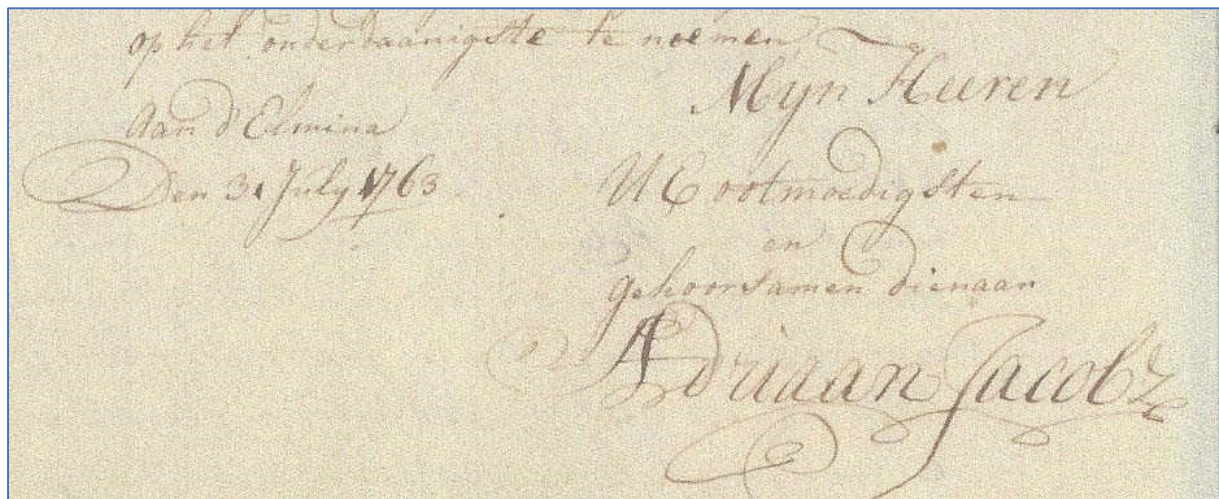 op het onderdaanigste te noemen
Mijn Heeren
Aan d'Elmina
Den 31 July 1763
UE ootmoedigsten
en
gehoorsamen dienaar
Adriaan Jacobz